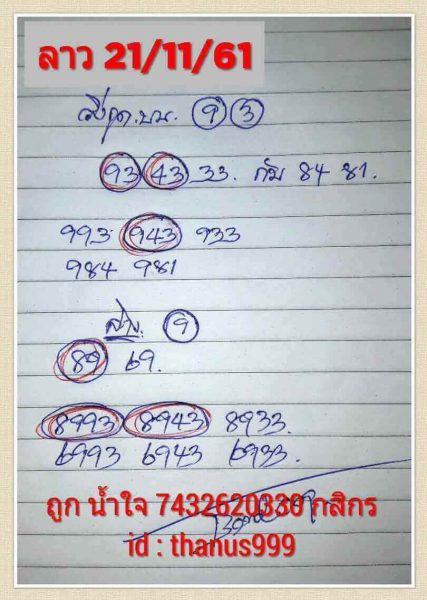 ลาว 21/11/61
วิ่งรูด.บน. 9 3
93 43 33. กับ 84 81.
993 943 933
984 981
ล่าง. 9
89 69.
8993 8943 8933.
6993 6943 6933.
ถูก น้ำใจ 7432620330 กสิกร
id : thanus999